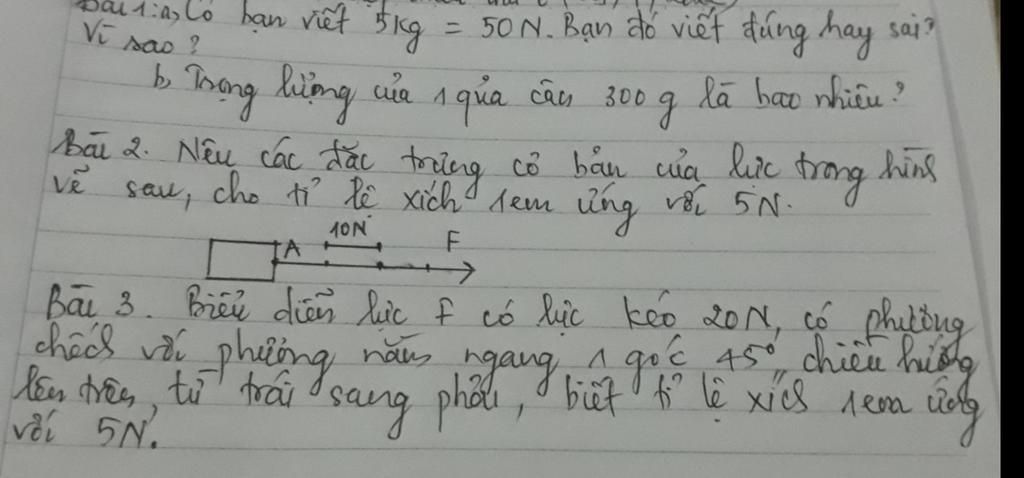 Bài 1: a, Có bạn viết 5kg = 50N. Bạn đó viết đúng hay sai?
Vì sao?
b, Trọng lượng của 1 quả cầu 300g là bao nhiêu?
Bài 2. Nêu các đặc trưng cơ bản của lực trong hình
vẽ sau, cho tỉ lệ xích 1cm ứng với 5N.
A 10N F
Bài 3. Biểu diễn lực F có lực kéo 20N, có phương
chếch với phương nằm ngang 1 góc 45°, chiều hướng
lên trên, từ trái sang phải, biết tỉ lệ xích 1cm ứng
với 5N.